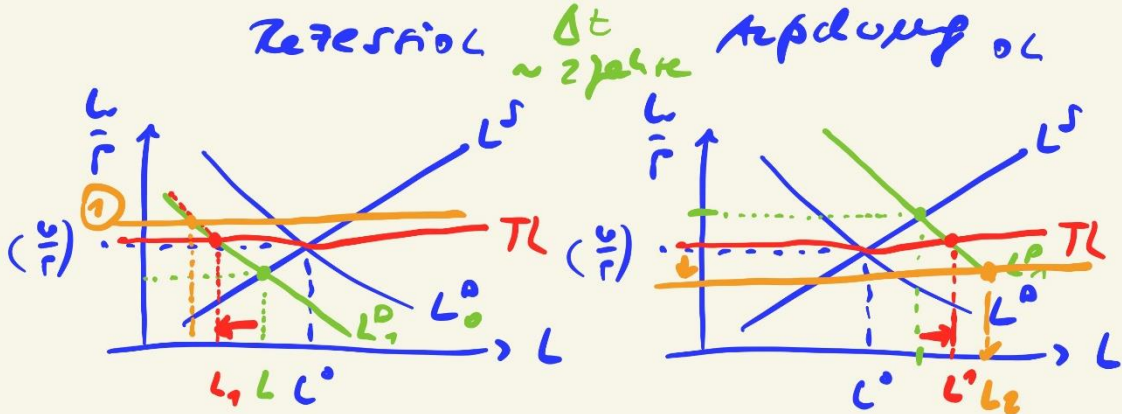 Rezession
Δt
~ 2 Jahre
Aufschwung
w
P
L^S
①
(w/P)
TL
L^D_0
L^D_1
L
L_1 L L^0
w
P
L^S
(w/P)
TL
L^D_1
L^D
L
L^0 L^1 L_2